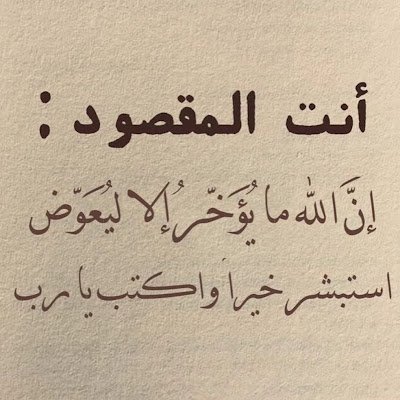 أنت المقصود :
إنَّ الله ما يُؤَخّرُ إلا ليُعَوّض
استبشر خيرا واكتب يا رب